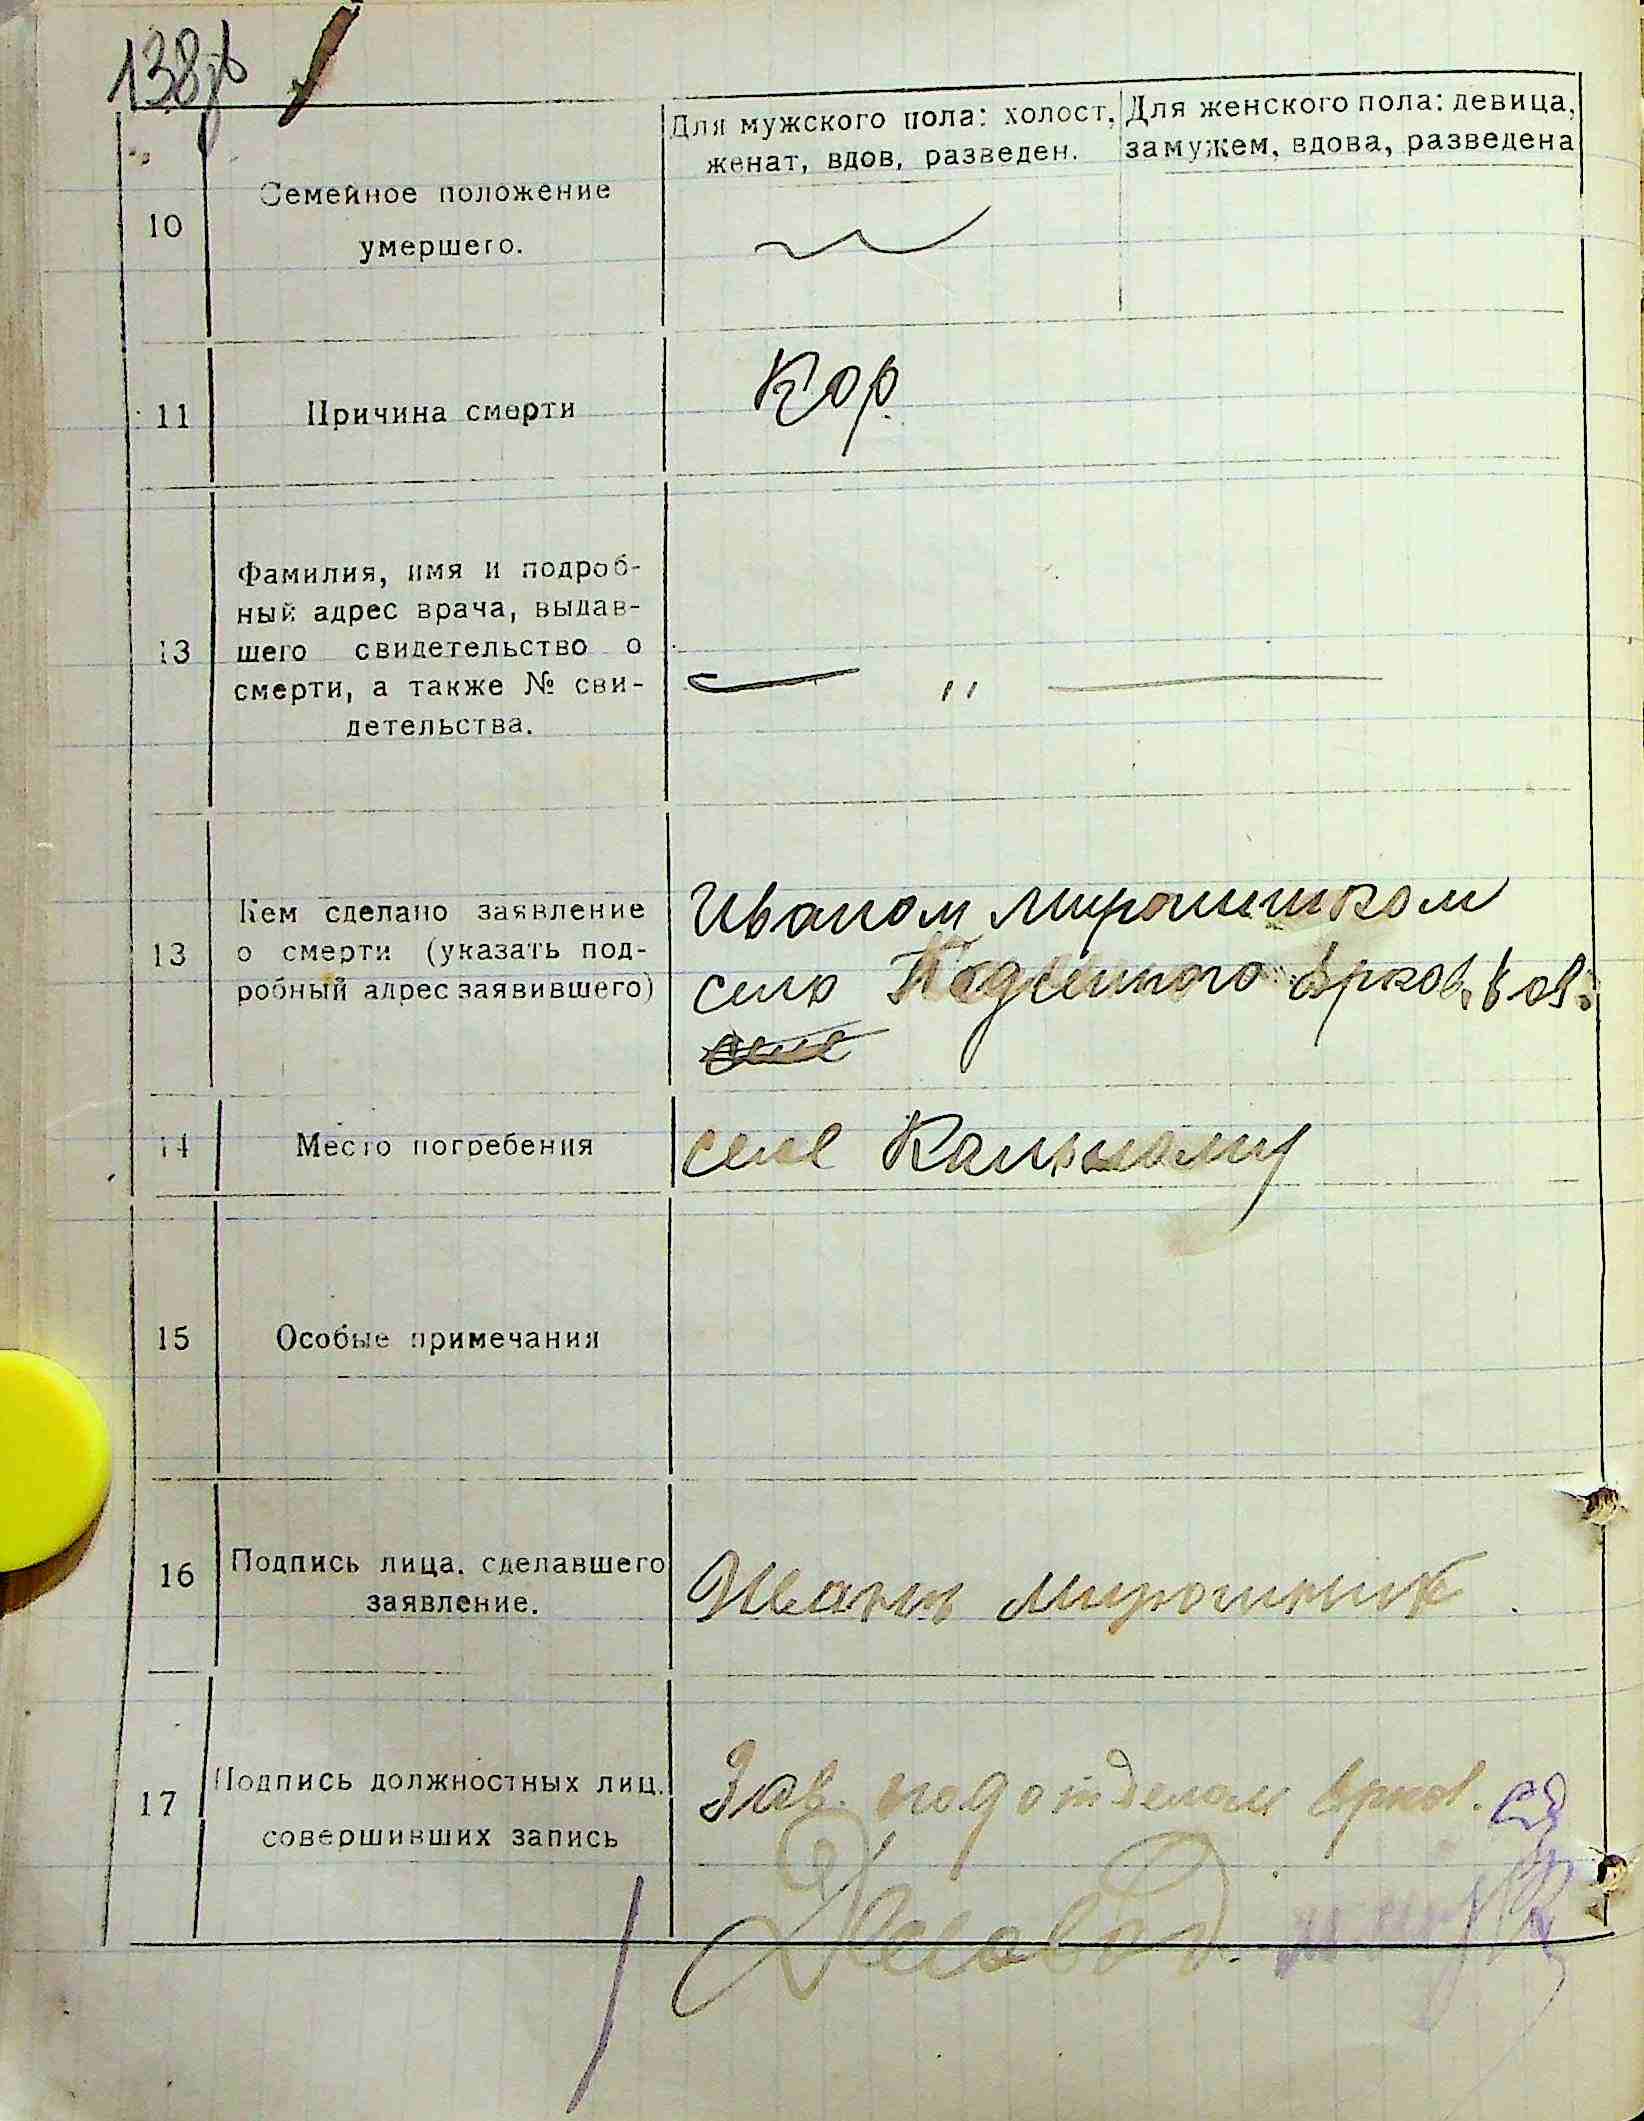 138
Для мужского пола: холост,
женат, вдов, разведен.
Для женского пола: девица,
замужем, вдова, разведена
10
Семейное положение
умершего.
11
Причина смерти
Кор.
13
Фамилия, имя и подроб-
ный адрес врача, выдав-
шего свидетельство о
смерти, а также № сви-
детельства.
— " —
13
Кем сделано заявление
о смерти (указать под-
робный адрес заявившего)
Иваном Мирошником
село
14
Место погребения
селе
15
Особые примечания
16
Подпись лица, сделавшего
заявление.
Иванъ Мирошник
17
Подпись должностных лиц.
совершивших запись
Зав. подотделом